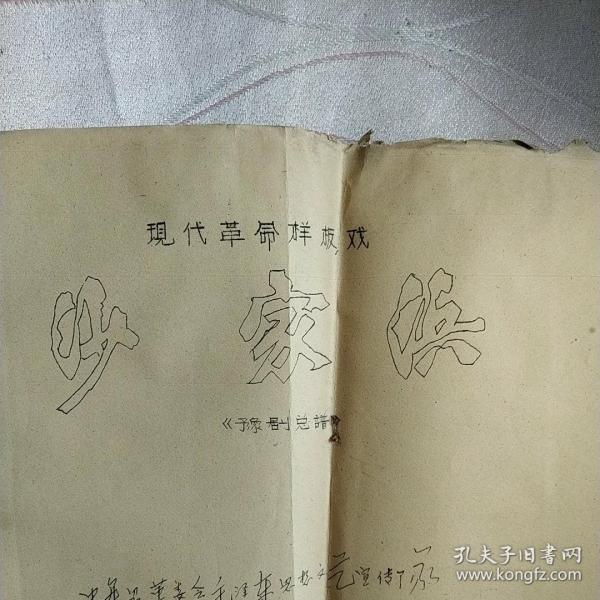 現代革命样板戏
沙家浜
《豫剧总譜》
革委会毛泽东思想文艺宣传队
孔夫子旧书网
www.kongfz.com